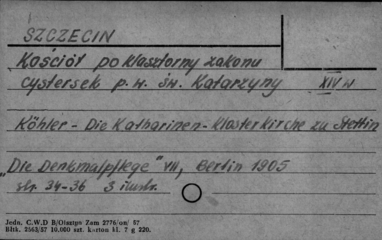 SZCZECIN
Kościół poklasztorny zakonu
cystersek p.w. św. Katarzyny XIV w
Köhler - Die Katharinen-Klosterkirche zu Stettin
„Die Denkmalpflege" VII, Berlin 1905
str. 34-36 3 ilustr.
Jedn. C.W.D B/Olsztyn Zam 2776/on/ 57
Bltk. 2563/57 10.000 szt. karton kl. 7 g 220.